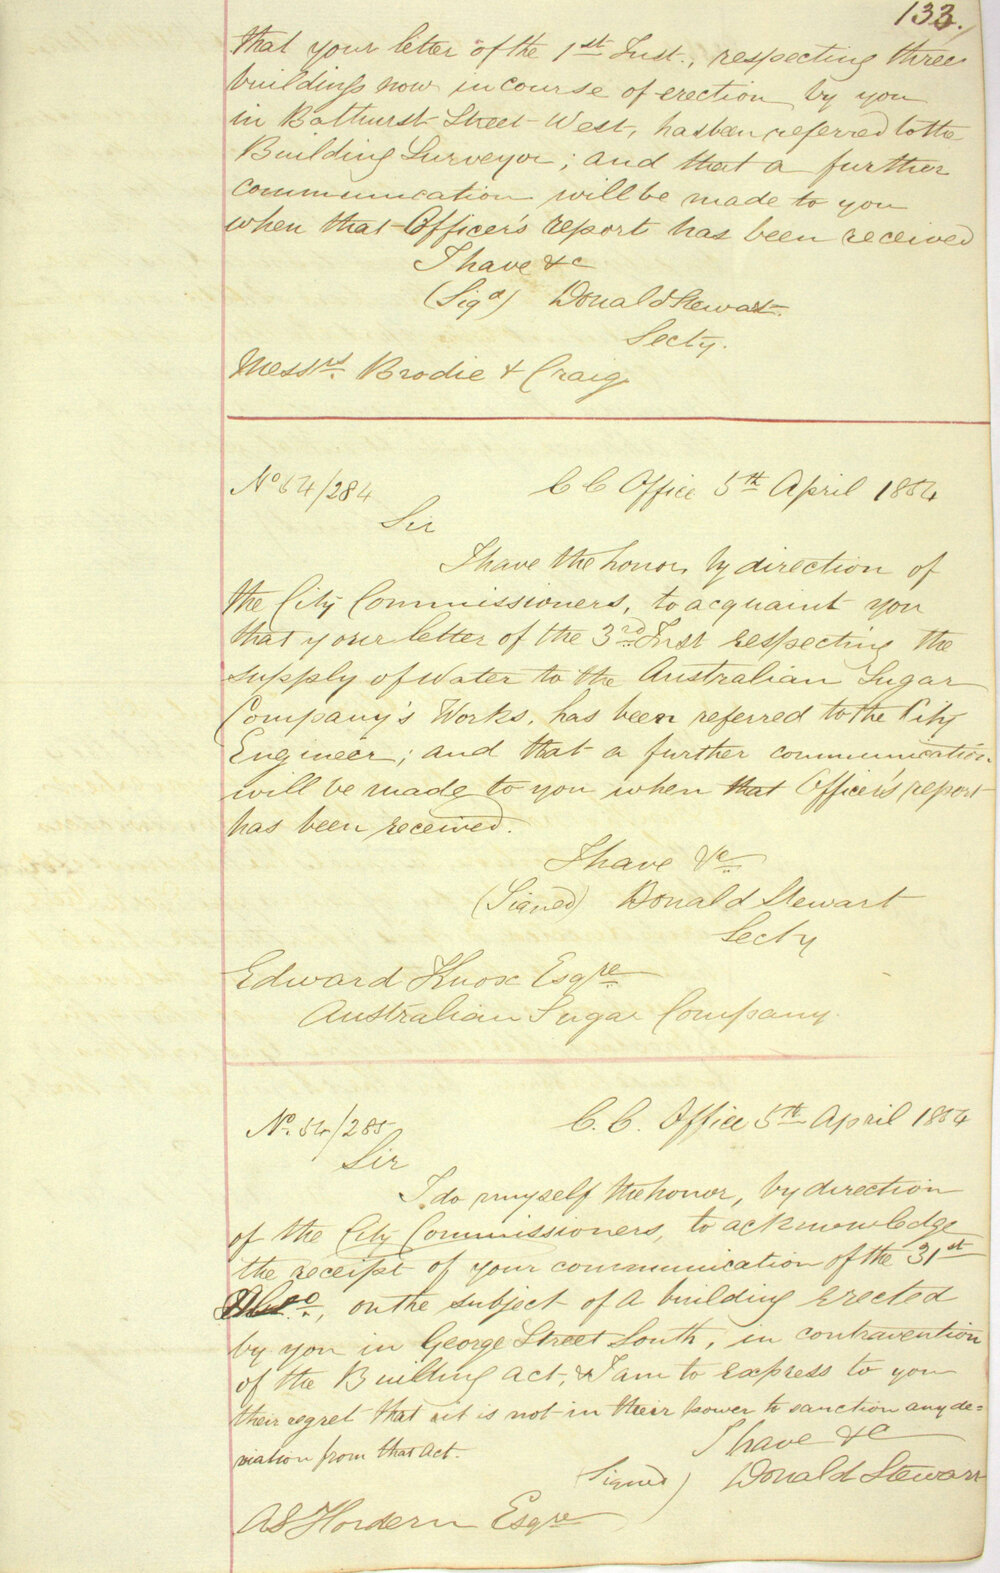 133.
that your letter of the 1st Inst., respecting three
buildings now in course of erection by you
in Bathurst Street West, has been referred to the
Building Surveyor; and that a further
communication will be made to you
when that Officer's report has been received
I have &c
(Sigd) Donald Stewart.
Secty.
Messrs. Brodie & Craig
No 54/284 C C Office 5th April 1854
Sir
I have the honor, by direction of
the City Commissioners, to acquaint you
that your letter of the 3rd Inst respecting the
supply of Water to the Australian Sugar
Company's Works, has been referred to the City
Engineer; and that a further communication
will be made to you when that Officer's report
has been received.
I have &c
(Signed) Donald Stewart
Secty
Edward Knox Esqre
Australian Sugar Company.
No. 54/285 C. C. Office 5th April 1854
Sir
I do myself the honor, by direction
of the City Commissioners, to acknowledge
the receipt of your communication of the 31st
on the subject of a building erected
by you in George Street South, in contravention
of the Building Act, & I am to express to you
their regret that it is not in their power to sanction any de=
viation from that Act.
I have &c
Signed) Donald Stewart
Hordern Esqre